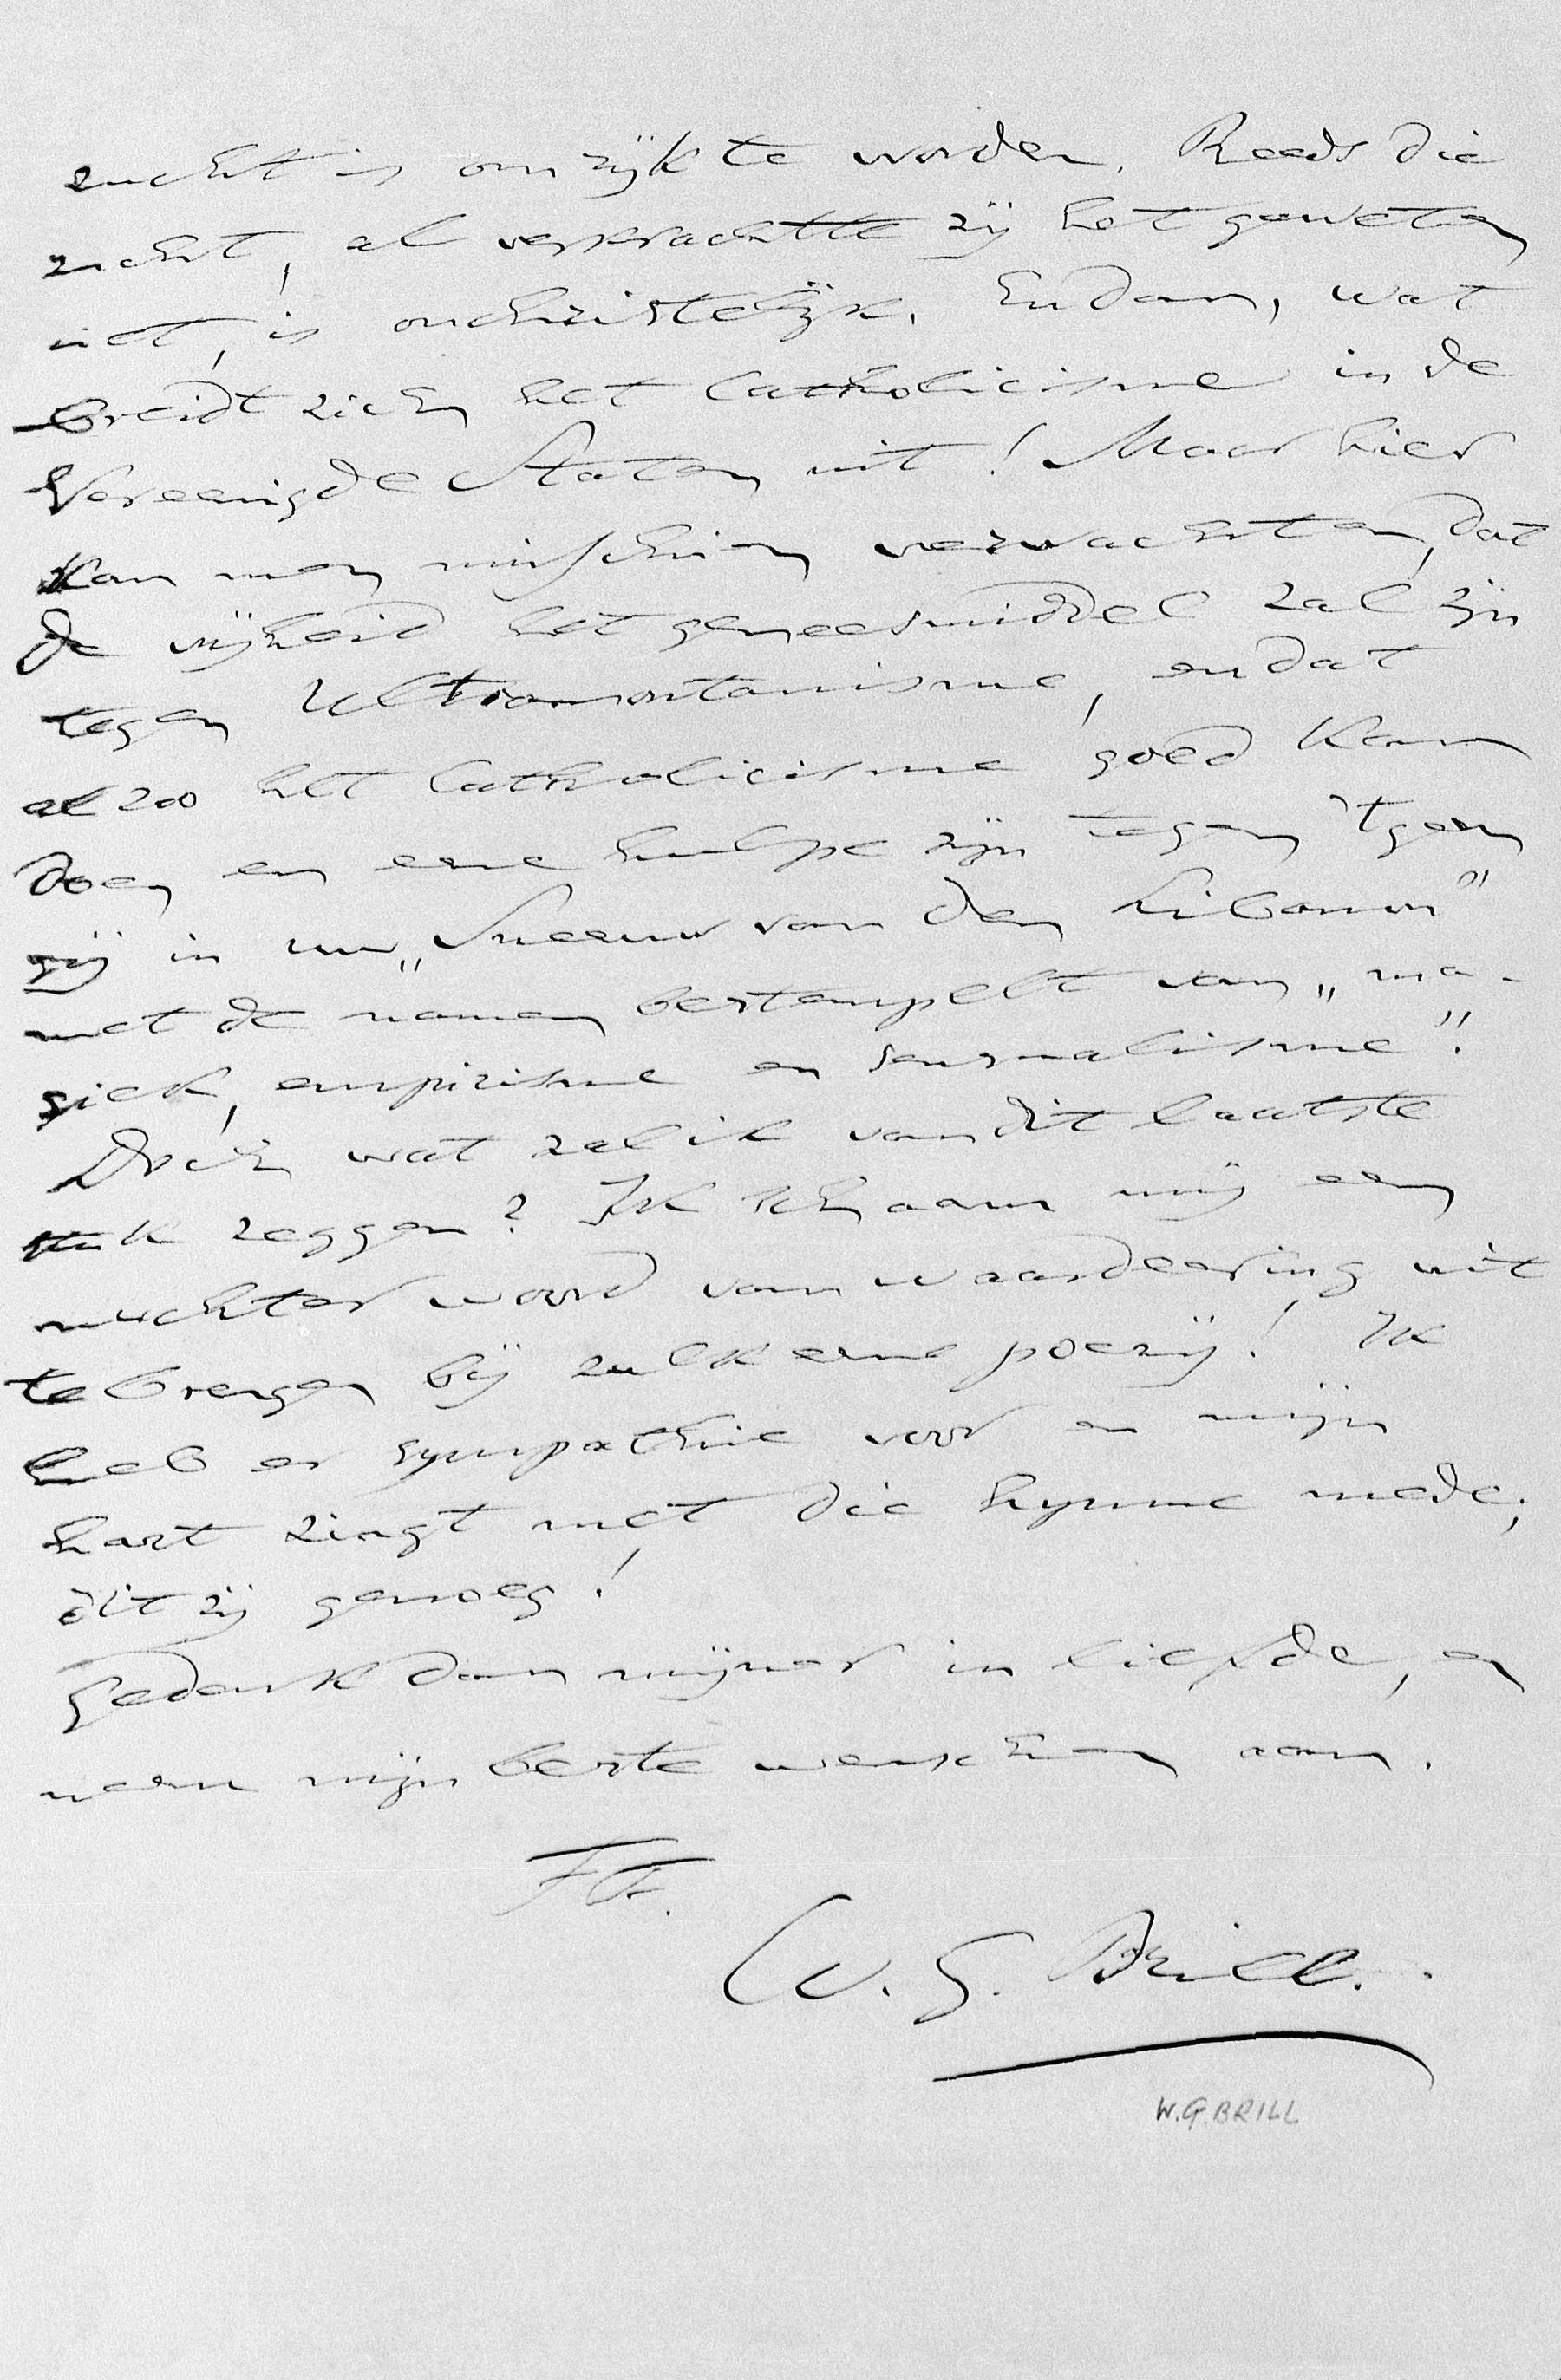 zucht is om rijk te worden. Reeds die
zucht, al verkrachtte zij het geweten
niet, is onchristelijk. En dan, wat
breidt zich het Catholicisme in de
Vereenigde Staten uit! Maar hier
kan men misschien verwachten, dat
de vrijheid het geneesmiddel zal zijn
tegen Ultramontanisme, en dat
alzoo het Catholicisme goed kan
doen en eene hulpe zijn tegen 'tgeen
gij in uw „Sneeuw van den Libanon”
met de namen bestempelt van „ma-
giek, empirisme en sensualisme”!
Doch wat zal ik van dit laatste
stuk zeggen? Ik schaam mij een
nuchter woord van waardeering uit
te brengen bij zulk eene poezij! Ik
heb er sympathie voor en mijn
hart zingt met die hymne mede;
dit zij genoeg!
Gedenk dan mijner in liefde, en
neem mijn beste wenschen aan.
tt.
W. G. Brill.
W.G. BRILL